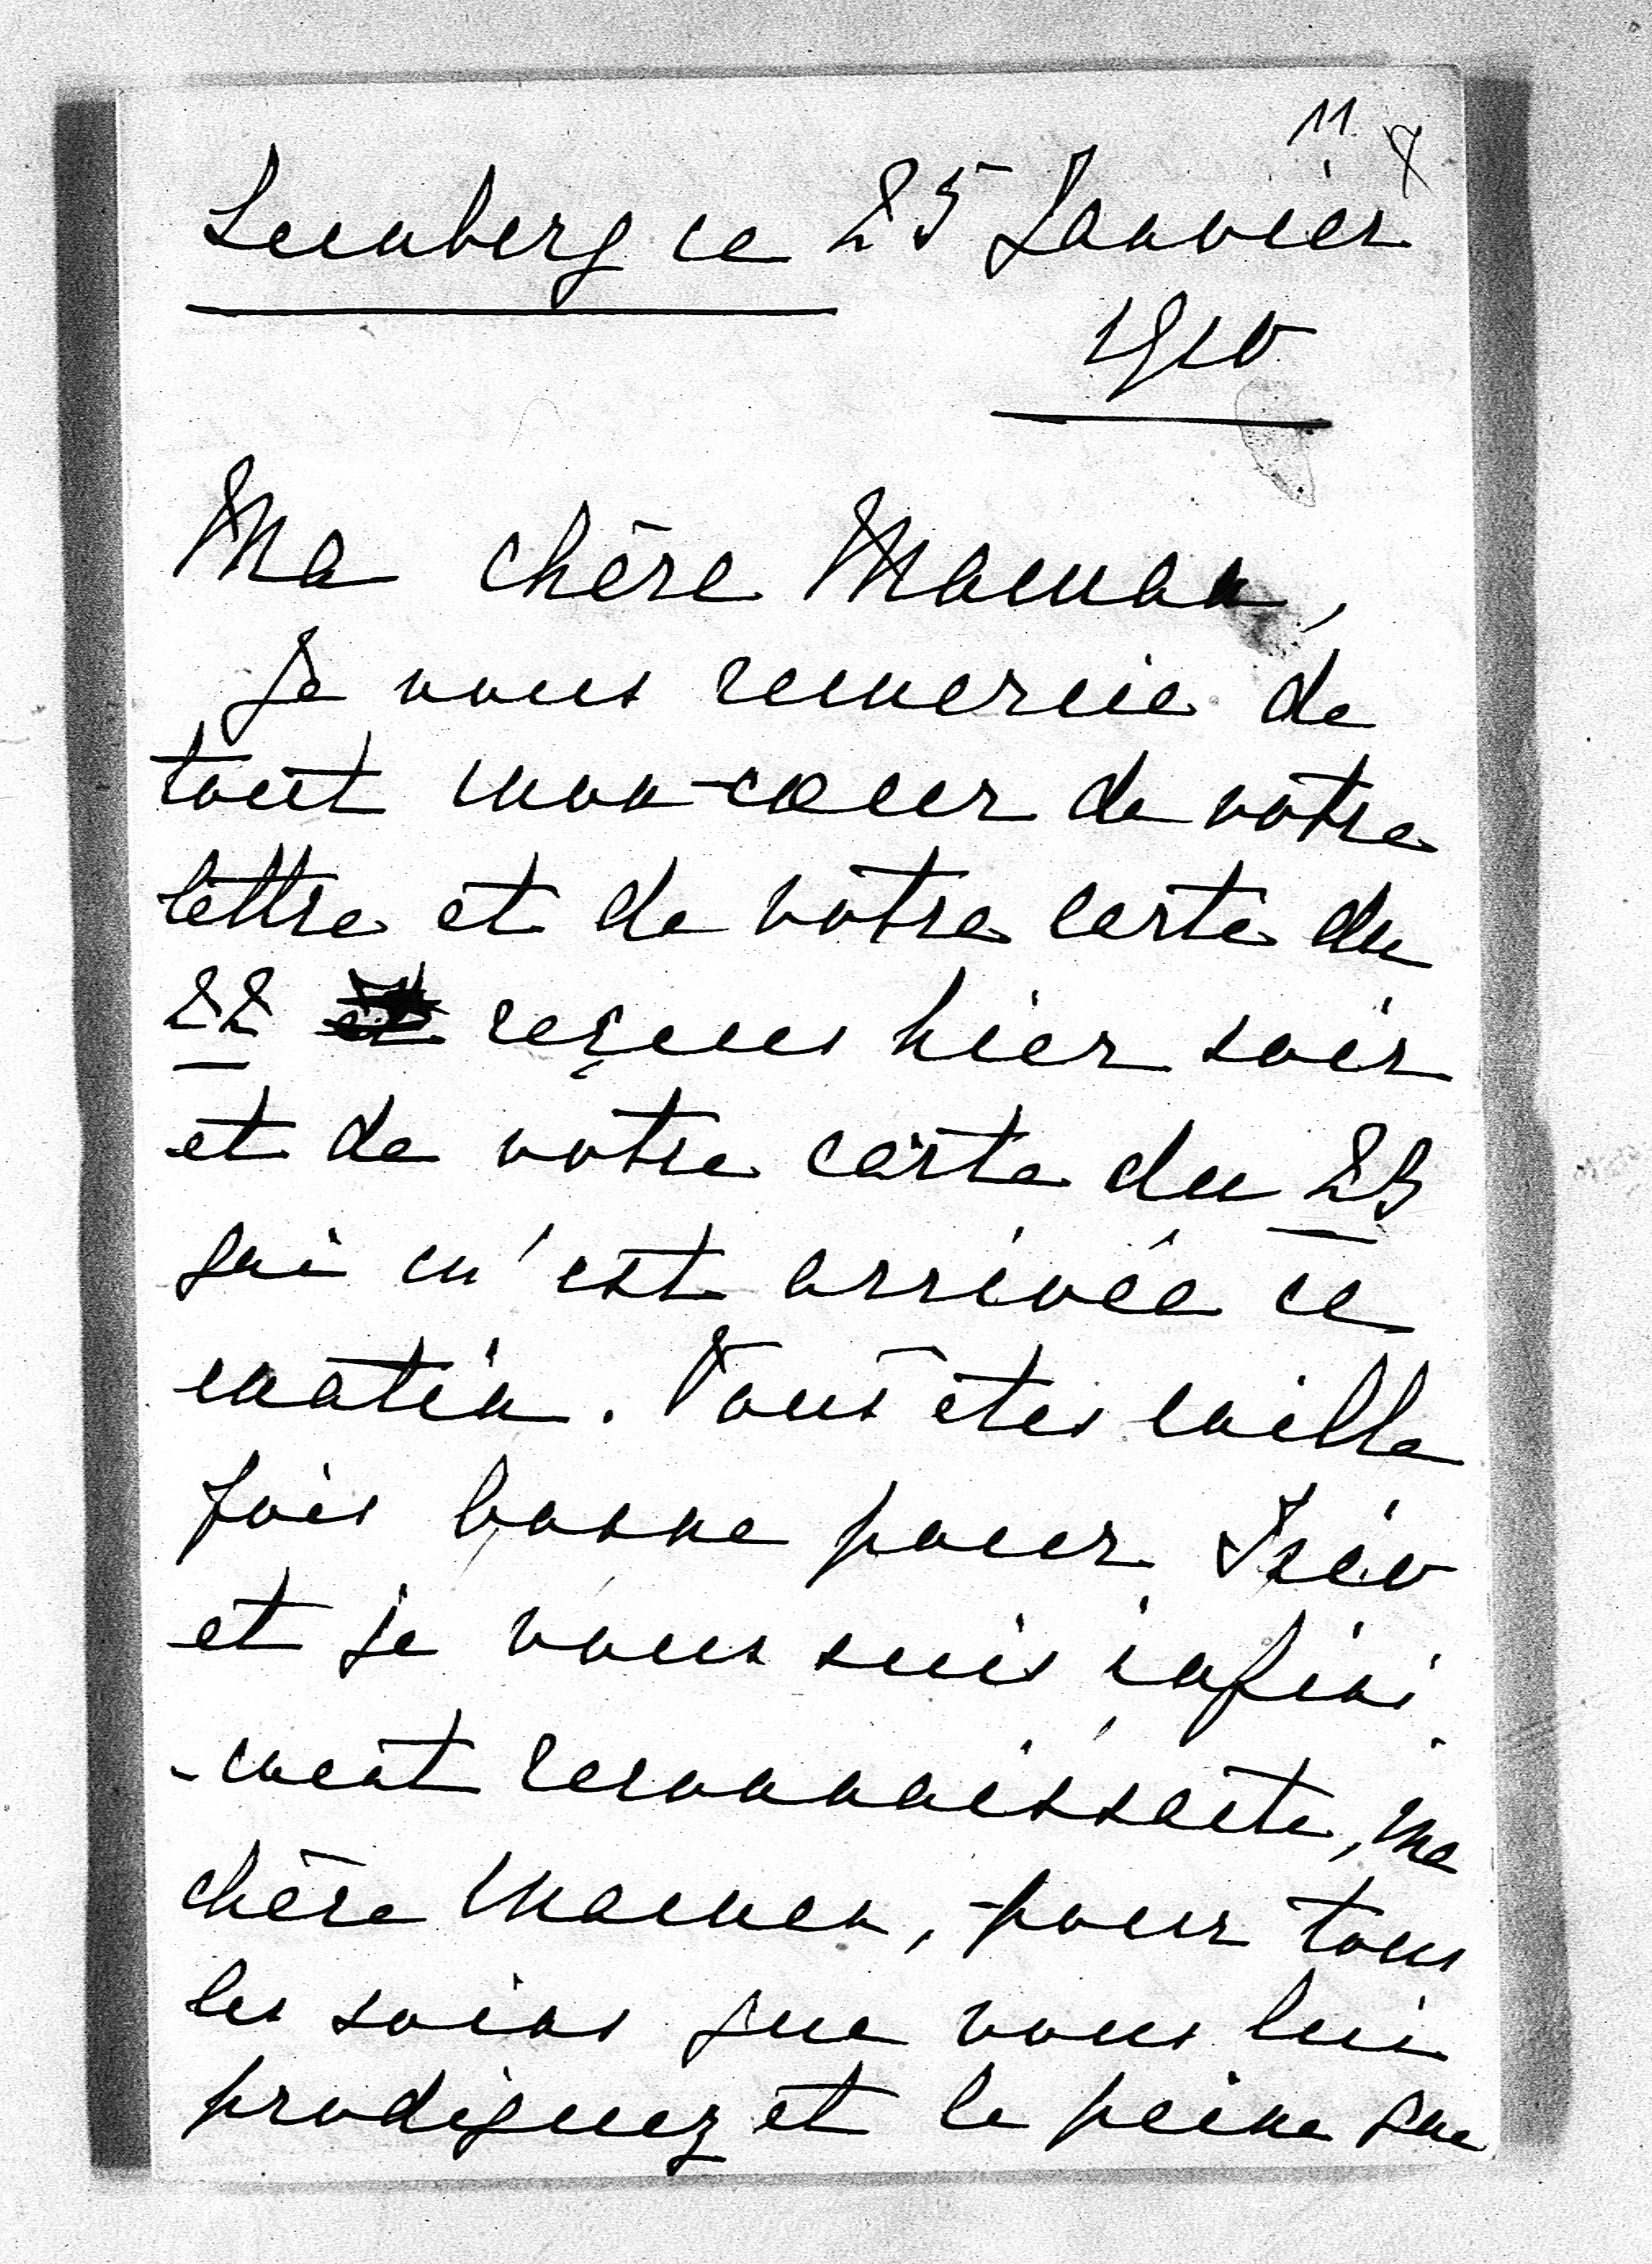 11
Lemberg ce 25 Janvier
1910
Ma chère Maman,
Je vous remercie de
tout mon cœur de votre
lettre et de votre carte du
22 reçues hier soir
et de votre carte du 23
qui m'est arrivée ce
matin. Vous êtes mille
fois bonne pour
et je vous suis infini
-ment reconnaissante, ma
chère Maman, pour tous
les soins que vous lui
prodiguez et la peine que